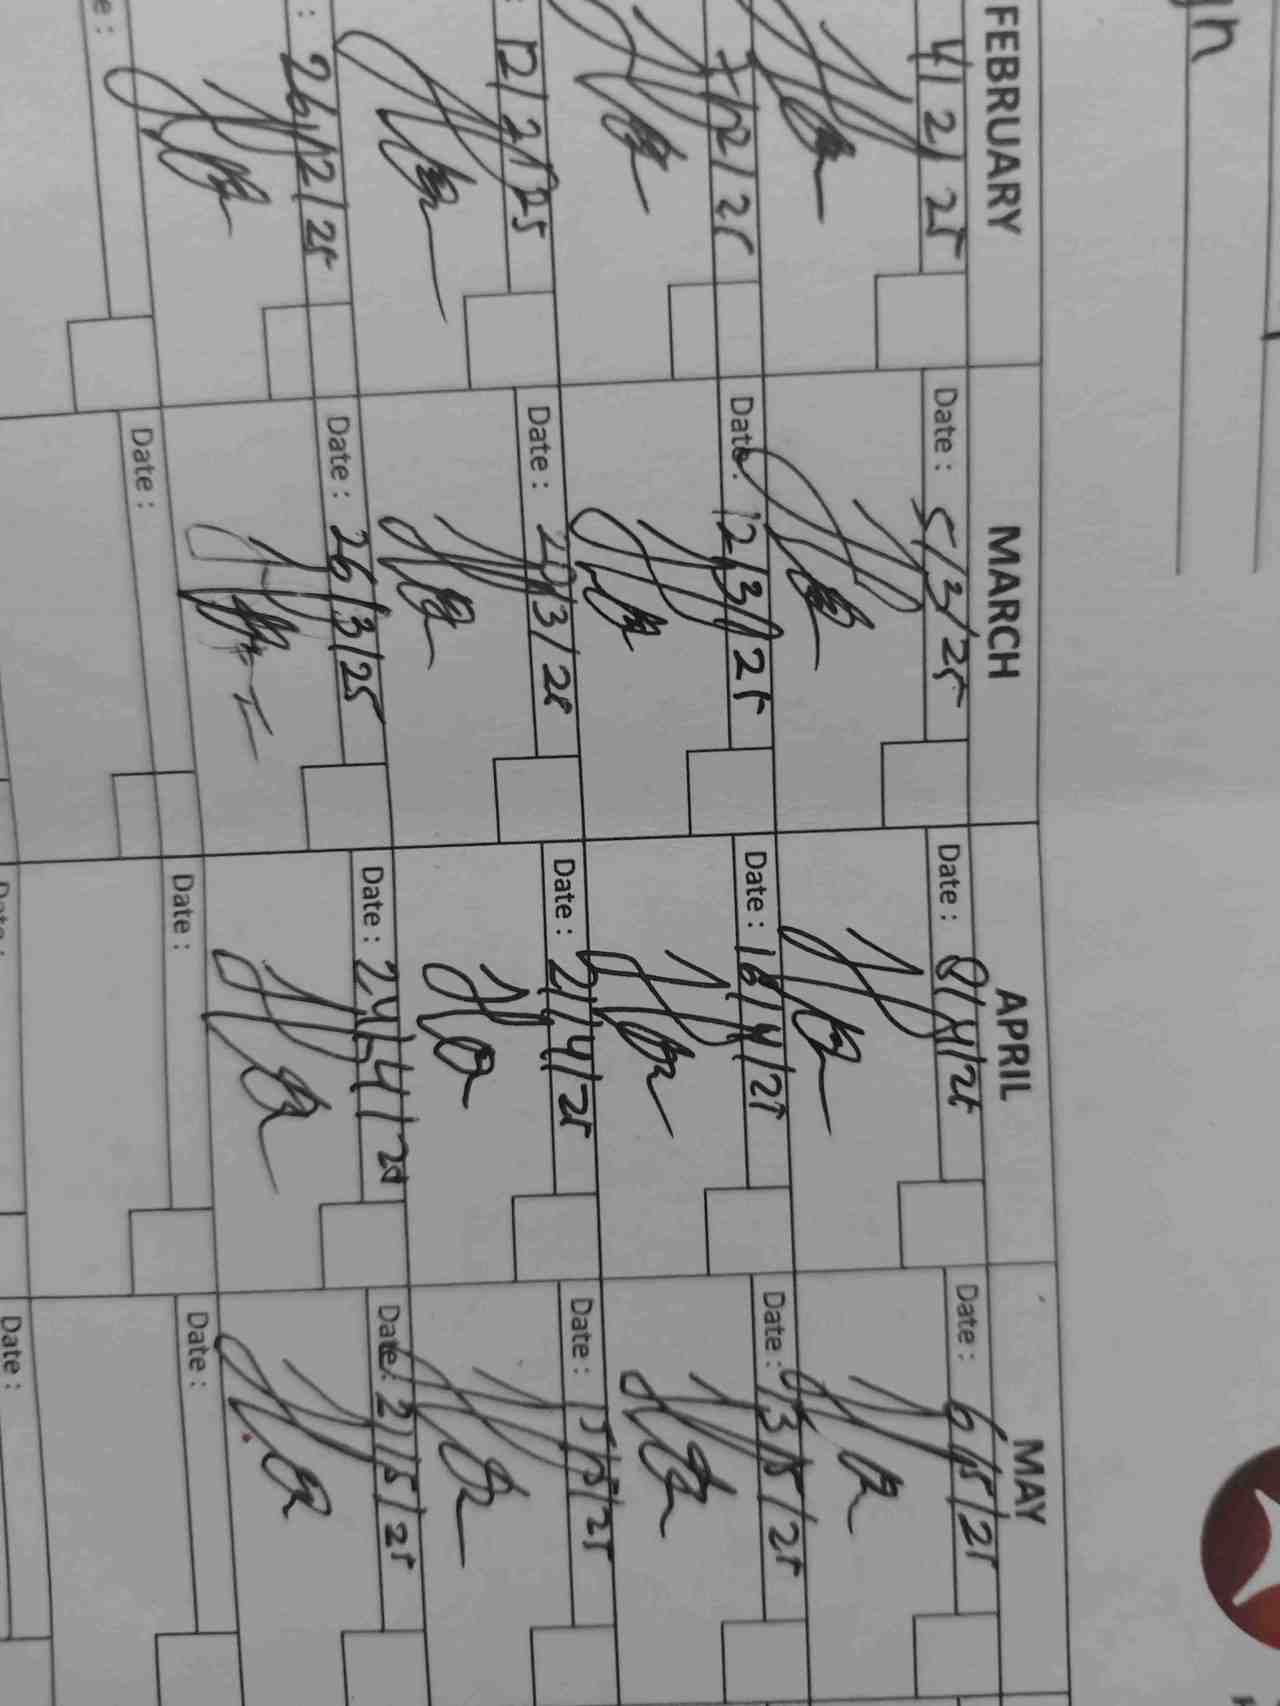 gn
FEBRUARY MARCH APRIL MAY
4/2/25 Date : 5/3/25 Date : 8/4/25 Date : 6/5/25
7/2/25 Date : 12/3/25 Date : 16/4/25 Date : 13/5/25
: 12/2/25 Date : 21/3/25 Date : 21/4/25 Date : 15/5/25
: 26/2/25 Date : 26/3/25 Date : 24/4/25 Date : 21/5/25
e : Date : Date : Date :
Date : Date :